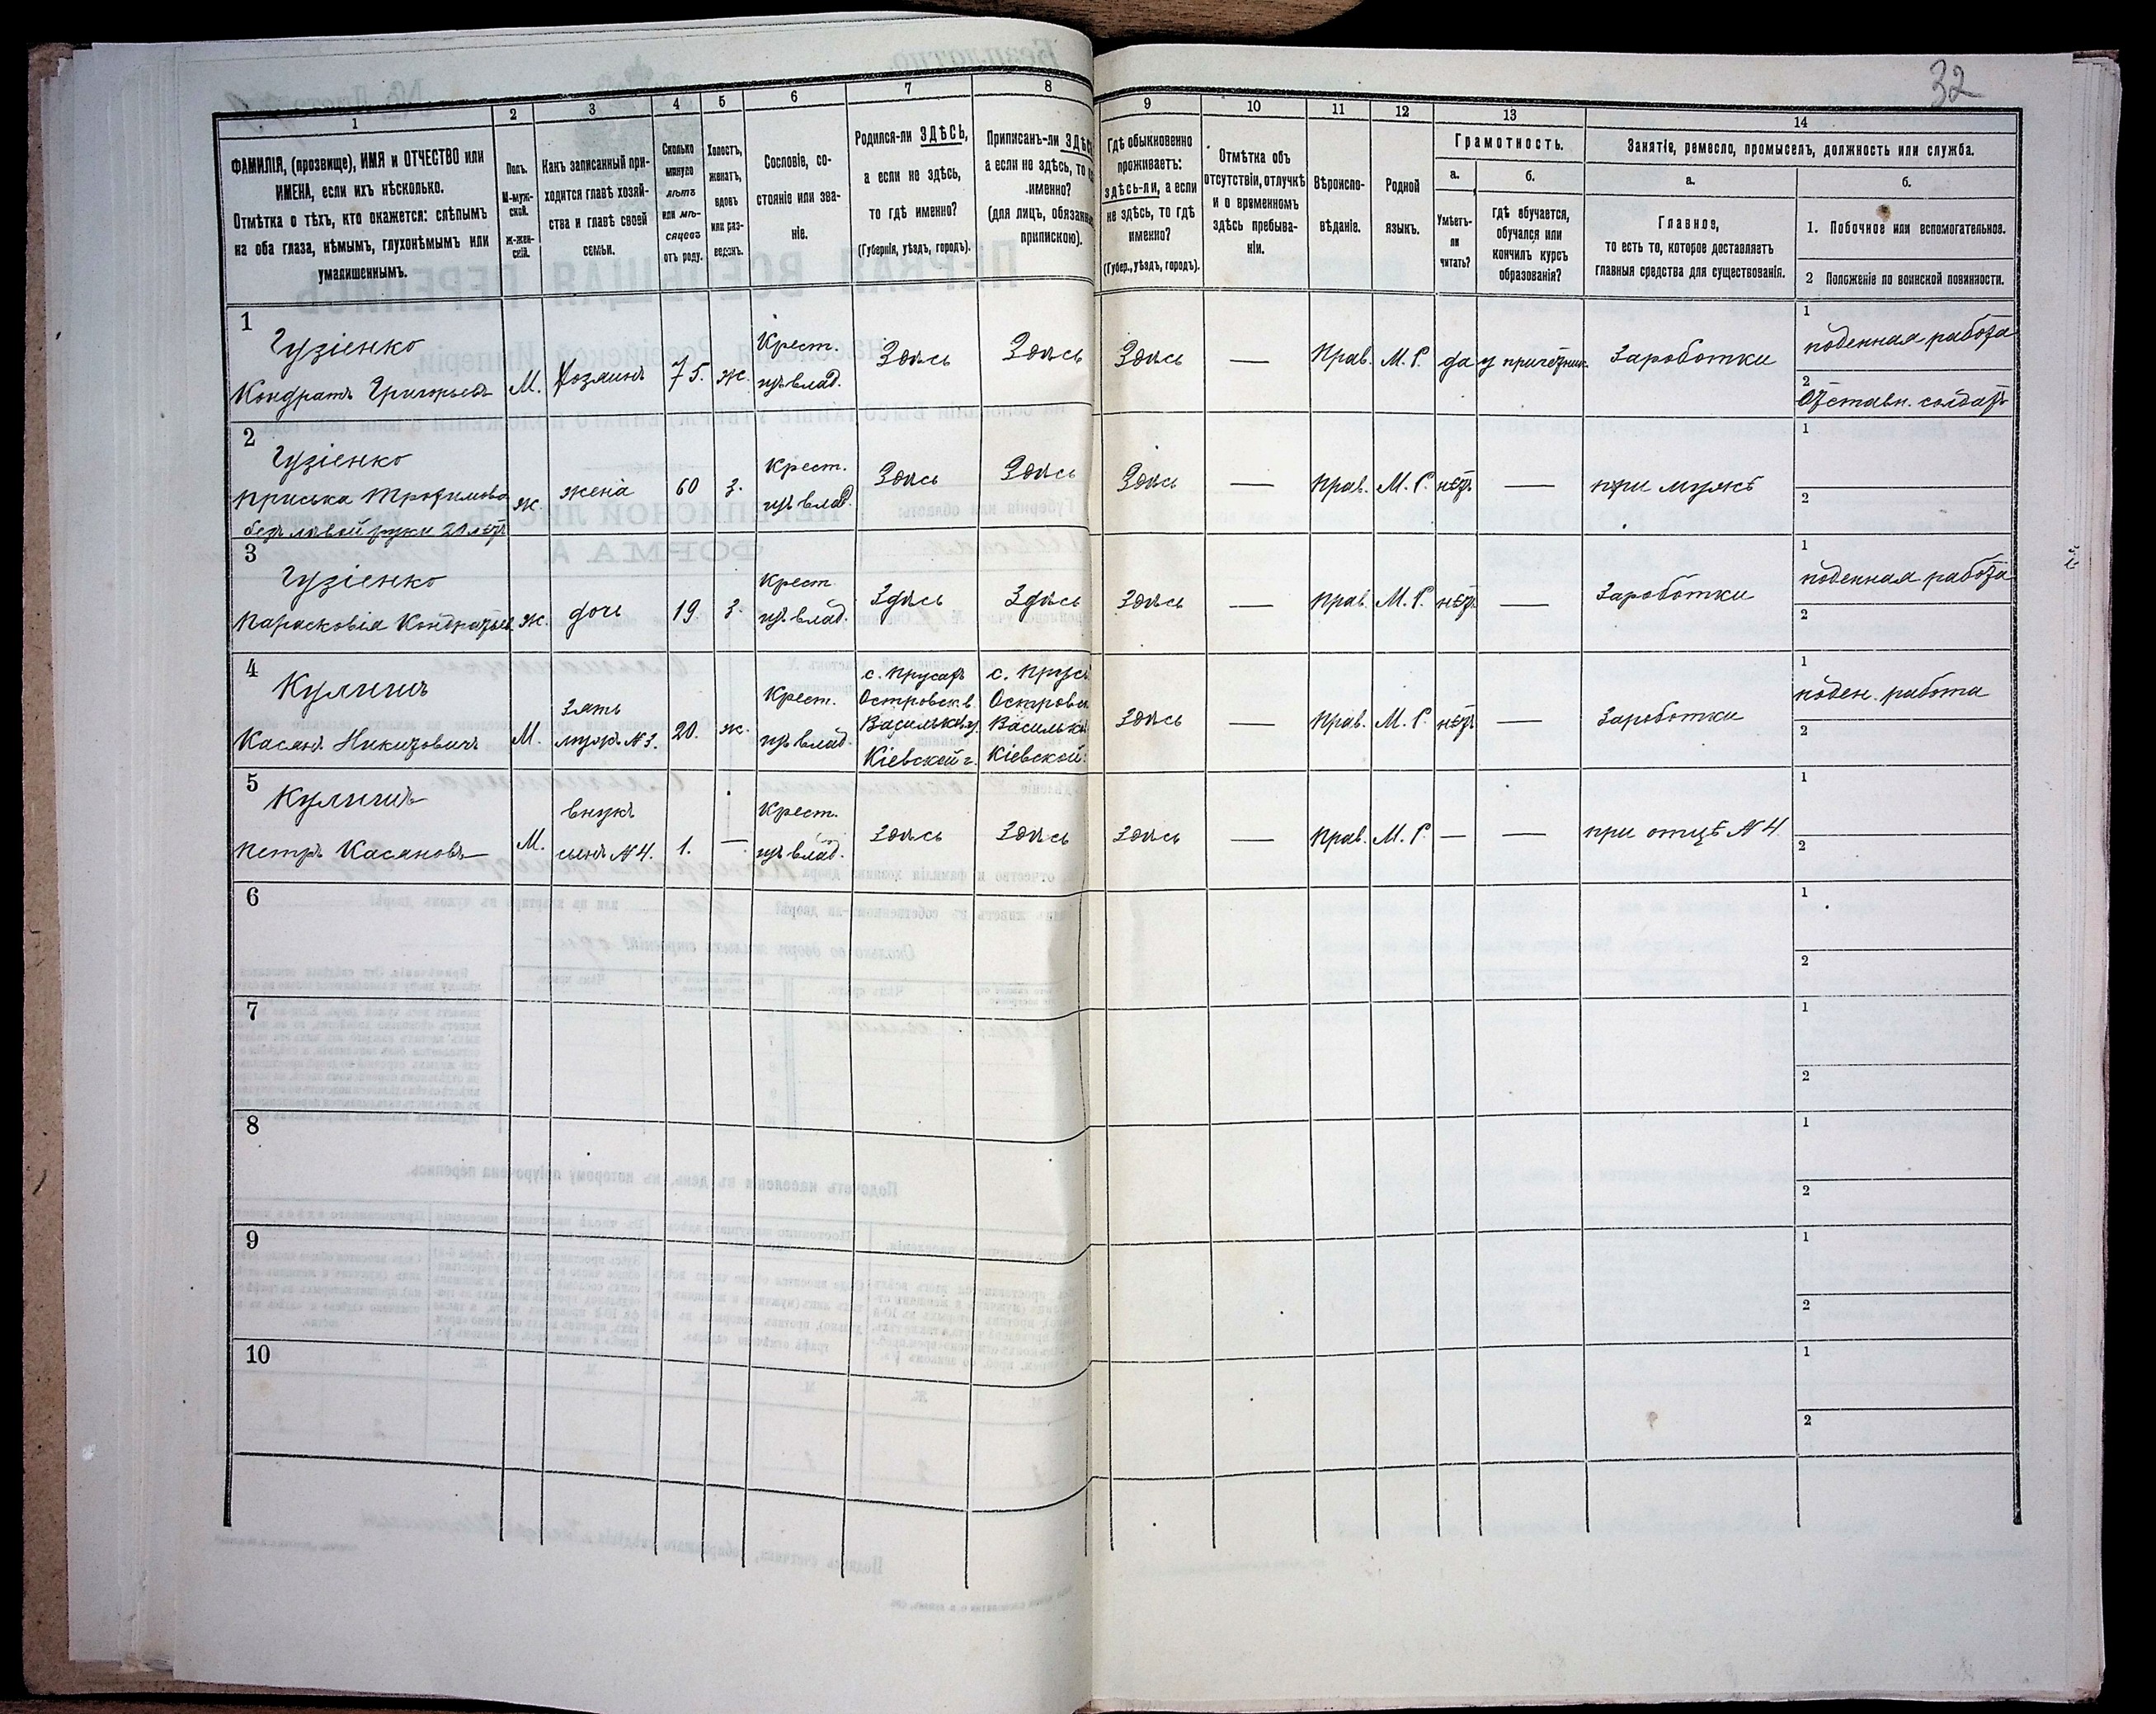 32
1
2
3
4
5
6
7
8
9
10
11
12
13
14
ФАМИЛІЯ, (прозвище), ИМЯ и ОТЧЕСТВО или
ИМЕНА, если ихъ нѣсколько.
Отмѣтка о тѣхъ, кто окажется: слѣпымъ
на оба глаза, нѣмымъ, глухонѣмымъ или
умалишеннымъ.
Полъ.
М-муж-
ской.
Ж-жен-
скій.
Какъ записанный при-
ходится главѣ хозяй-
ства и главѣ своей
семьи.
Сколько
минуло
лѣтъ
или мѣ-
сяцевъ
отъ роду.
Холостъ,
женатъ,
вдовъ
или раз-
веденъ.
Сословіе, со-
стояніе или зва-
ніе.
Родился-ли ЗДѢСЬ,
а если не здѣсь,
то гдѣ именно?
(Губернія, уѣздъ, городъ).
Приписанъ-ли ЗДѢСЬ
а если не здѣсь, то
именно?
(для лицъ, обязан
припискою).
Гдѣ обыкновенно
проживаетъ:
здѣсь-ли, а если
не здѣсь, то гдѣ
именно?
(Губер., уѣздъ, городъ).
Отмѣтка объ
отсутствіи, отлучкѣ
и о временномъ
здѣсь пребыва-
ніи.
Вѣроиспо-
вѣданіе.
Родной
языкъ.
Грамотность.
а.
Умѣетъ-
ли
читать?
б.
гдѣ обучается,
обучался или
кончилъ курсъ
образованія?
Занятіе, ремесло, промыселъ, должность или служба.
а.
Главное,
то есть то, которое доставляетъ
главныя средства для существованія.
б.
1. Побочное или вспомогательное.
2 Положеніе по воинской повинности.
1
Гузіенко
Кондратъ Григорьевъ
М.
Хозяинъ
75.
ж.
Крест.
изъ влад.
Здѣсь
Здѣсь
Здѣсь
—
Прав.
М. Р.
да
у причетник.
Зароботки
1
поденная работа
2
Отставн. солдатъ
2
Гузіенко
Приська Трофимова
безъ лѣвой руки 20 лѣтъ
ж.
жена
60
з.
Крест.
изъ влад.
Здѣсь
Здѣсь
Здѣсь
—
Прав.
М. Р.
нѣтъ
—
при мужѣ
1
2
3
Гузіенко
Парасковія Кондратьев
ж.
дочь
19.
з.
Крест
изъ влад.
Здѣсь
Здѣсь
Здѣсь
—
Прав.
М. Р.
нѣтъ
—
Зароботки
1
поденная работа
2
4
Куличъ
Касянъ Никитовичъ
М.
Зять
мужъ № 3.
20.
ж.
Крест.
изъ влад
с. Прусахъ
Островск. в.
Васильков. у.
Кіевской г.
с. Прусы
Островск
Васильк
Кіевской
Здѣсь
—
Прав.
М. Р.
нѣтъ
—
Зароботки
1
поден. работа
2
5
Куличъ
Петръ Касяновъ
М.
внукъ
сынъ № 4.
1.
—
Крест.
изъ влад.
Здѣсь
Здѣсь
Здѣсь
—
Прав.
М. Р.
—
—
при отцѣ № 4.
1
2
6
1
2
7
1
2
8
1
2
9
1
2
10
1
2